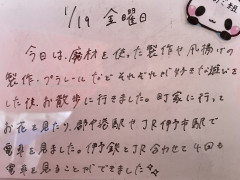 1/19 金曜日
今日は、廃材を使った製作や凧揚げの
製作、プラレールなどそれぞれが好きな遊びを
した後、お散歩に行きました。町家に行って
お花を見たり、郡中港駅やJR伊予市駅で
電車を見ました。伊予鉄とJR合わせて4回も
電車を見ることができました